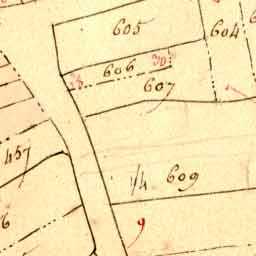 605
604
606
607
457
1/4 609
6
9